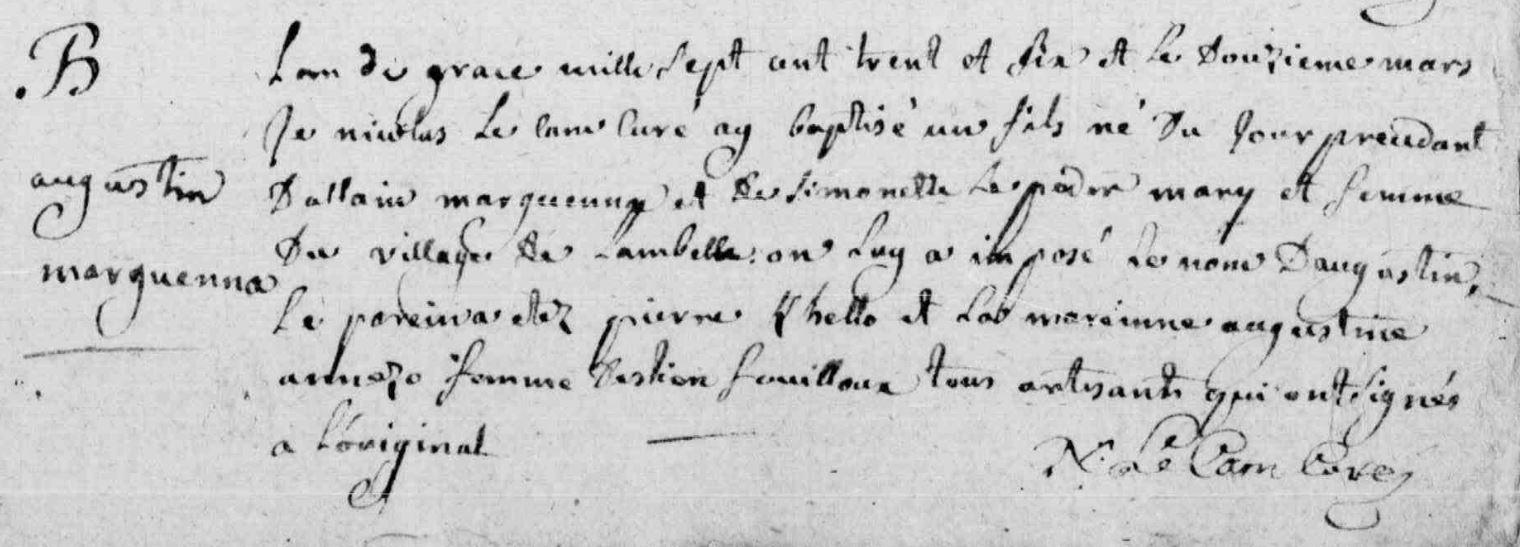 B
augustin
marguenna
Lan de grace mille sept cent trent et six et le douzieme mars
Je nicolas Le cam curé ay baptisé un fils né du jour precedant
Dallain et de simonette Le peder mary et femme
Du village de Lambelle: on luy a imposé le nom Daugustin,
Le parein a etez pierre Khello et la mareinne augustine
femme tous artisants qui ont signés
a L'original
N: Le Cam Curé